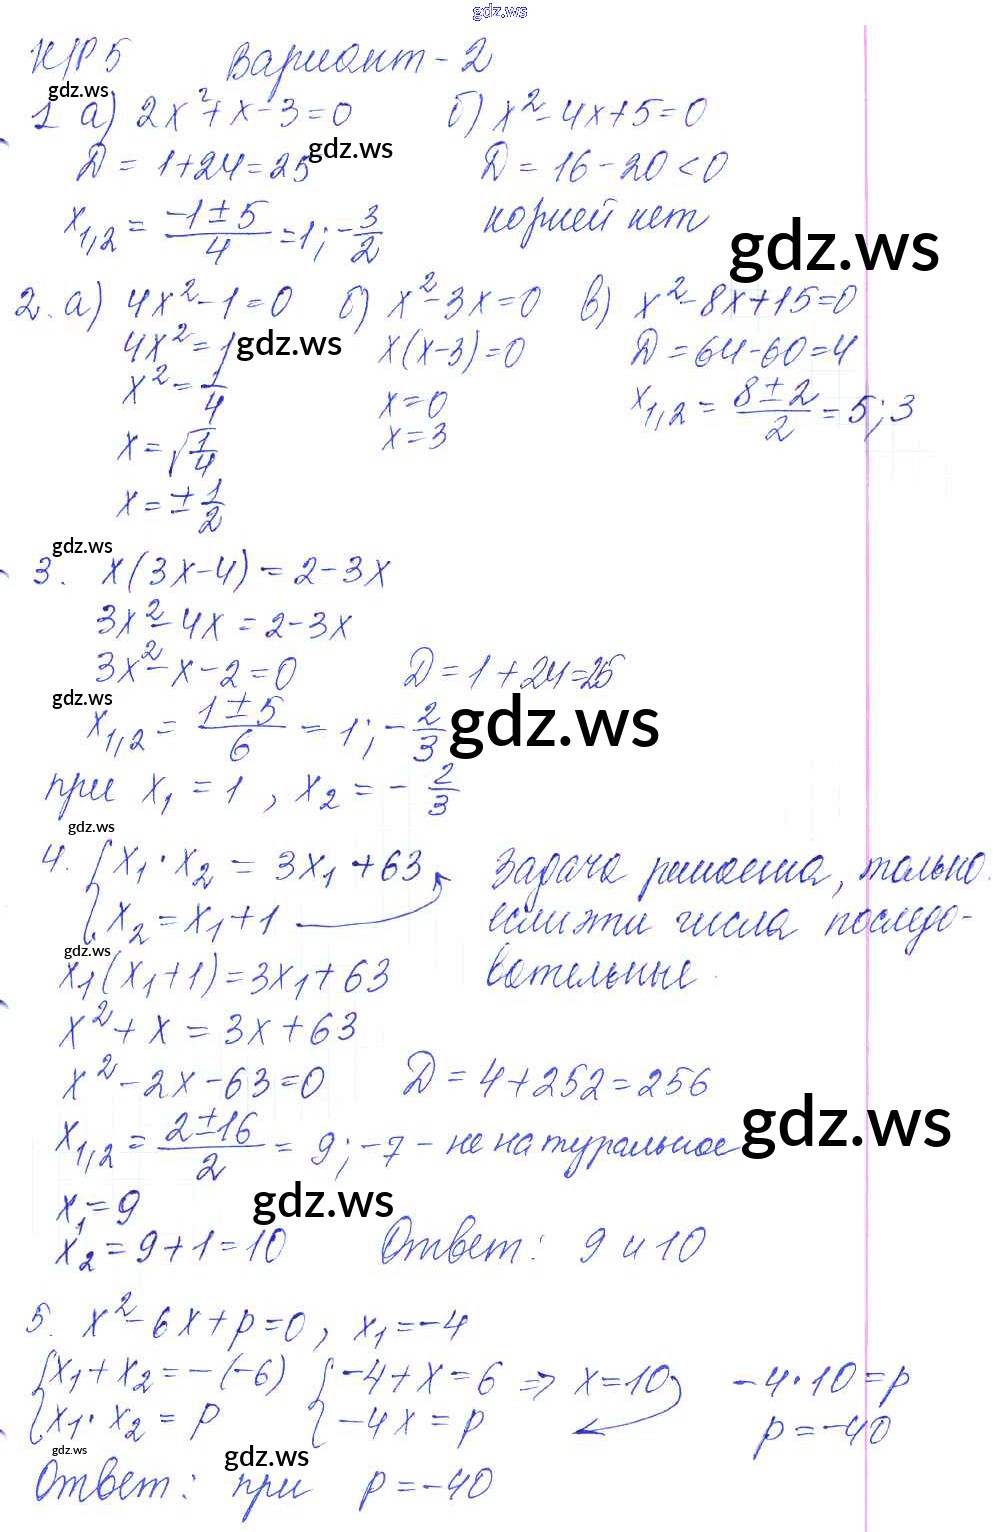 gdz.ws
К/Р 5 Вариант - 2
gdz.ws
1 а) 2x² + x - 3 = 0 б) x² - 4x + 5 = 0
Д = 1 + 24 = 25 gdz.ws Д = 16 - 20 < 0
x₁,₂ = (-1 ± 5)/4 = 1; -3/2 корней нет
gdz.ws
2. а) 4x² - 1 = 0 б) x² - 3x = 0 в) x² - 8x + 15 = 0
4x² = 1 gdz.ws x(x - 3) = 0 Д = 64 - 60 = 4
x² = 1/4 x = 0 x₁,₂ = (8 ± 2)/2 = 5; 3
x = √(1/4) x = 3
x = ± 1/2
gdz.ws
3. x(3x - 4) = 2 - 3x
3x² - 4x = 2 - 3x
3x² - x - 2 = 0 Д = 1 + 24 = 25
gdz.ws
x₁,₂ = (1 ± 5)/6 = 1; -2/3 gdz.ws
при x₁ = 1, x₂ = -2/3
gdz.ws
4. { x₁ · x₂ = 3x₁ + 63 Задача решаема, только
x₂ = x₁ + 1 если эти числа последо-
gdz.ws
x₁(x₁ + 1) = 3x₁ + 63 вательные.
x² + x = 3x + 63
x² - 2x - 63 = 0 Д = 4 + 252 = 256
x₁,₂ = (2 ± 16)/2 = 9; -7 - не натуральное gdz.ws
x₁ = 9 gdz.ws
x₂ = 9 + 1 = 10 Ответ: 9 и 10
5. x² - 6x + p = 0, x₁ = -4
{ x₁ + x₂ = -(-6) { -4 + x = 6 => x = 10 -4 · 10 = p
x₁ · x₂ = p -4x = p p = -40
gdz.ws gdz.ws
Ответ: при p = -40